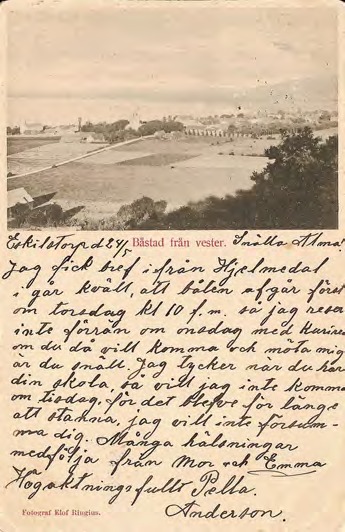 Eskilstorp d 24/5 Båstad från vester. Snälla Alma!
Jag fick bref ifrån Hjelmedal
i går kväll, att båten afgår först
om torsdag kl 10 f. m. så jag reser
inte förrän om onsdag med kuriren
om du då vill komma och möta mig
är du snäll. Jag tycker när du har
din skola, så vill jag inte komma
om tisdag, för det blefve för länge
att stanna, jag vill inte försum-
ma dig. Många hälsningar
medfölja från Mor och Emma
Högaktningsfullt Pella.
Anderson.
Fotograf Elof Ringius.